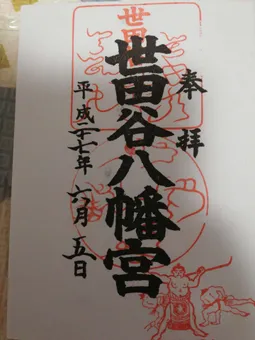 奉拝
世田谷八幡宮
平成二十七年六月五日